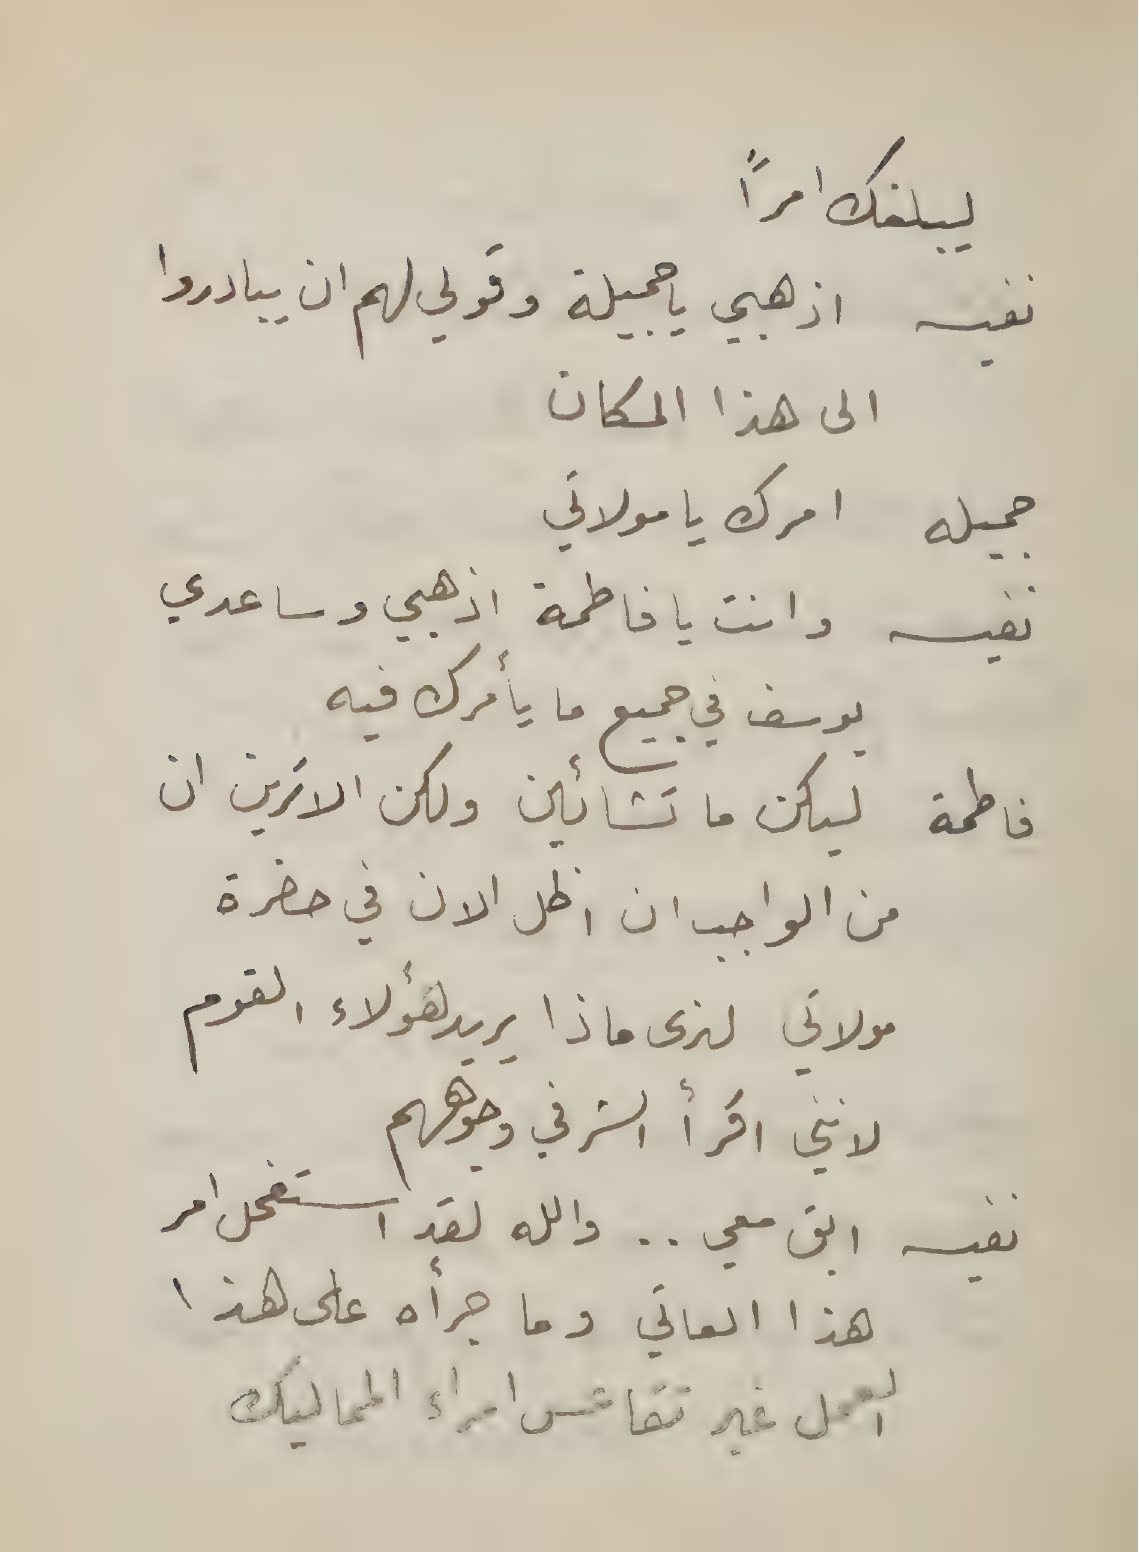 ليبلغك امرًا
نفيسه اذهبي يا جميلة وقولي لهم ان يبادروا
الى هذا المكان
جميله امرك يا مولاتي
نفيسه وانت يا فاطمة اذهبي وساعدي
يوسف في جميع ما يأمرك فيه
فاطمة ليكن ما تشائين ولكن الا ترين ان
من الواجب ان اظل الان في حضرة
مولاتي لنرى ماذا يريد هؤلاء القوم
لانني اقرأ الشر في وجوههم
نفيسه ابق معي .. والله لقد استفحل امر
هذا العاتي وما جرأه على هذا
العمل غير تقاعس امراء المماليك